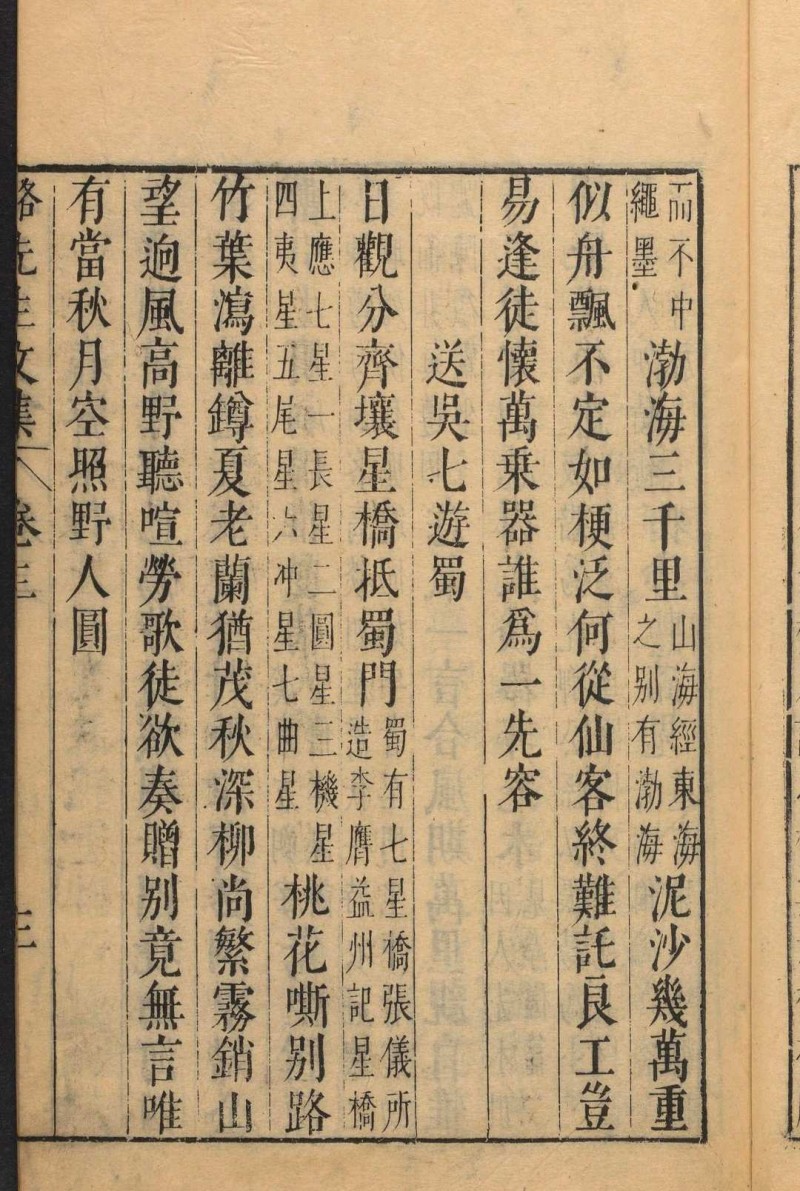 而不中繩墨渤海三千里山海經東海之别有渤海泥沙幾萬重
似舟飄不定如梗泛何從仙客終難託良工豈
易逢徒懷萬乗器誰爲一先容
送吳七遊蜀
日觀分齊壤星橋抵蜀門蜀有七星橋張儀所造李膺益州記星橋
上應七星一長星二圓星三機星四夷星五尾星六冲星七曲星桃花嘶别路
竹葉瀉離鐏夏老蘭猶茂秋深柳尚繁霧銷山
望逈風高野聽喧勞歌徒欲奏贈别竟無言唯
有當秋月空照野人圓
駱先生文集 卷三 三